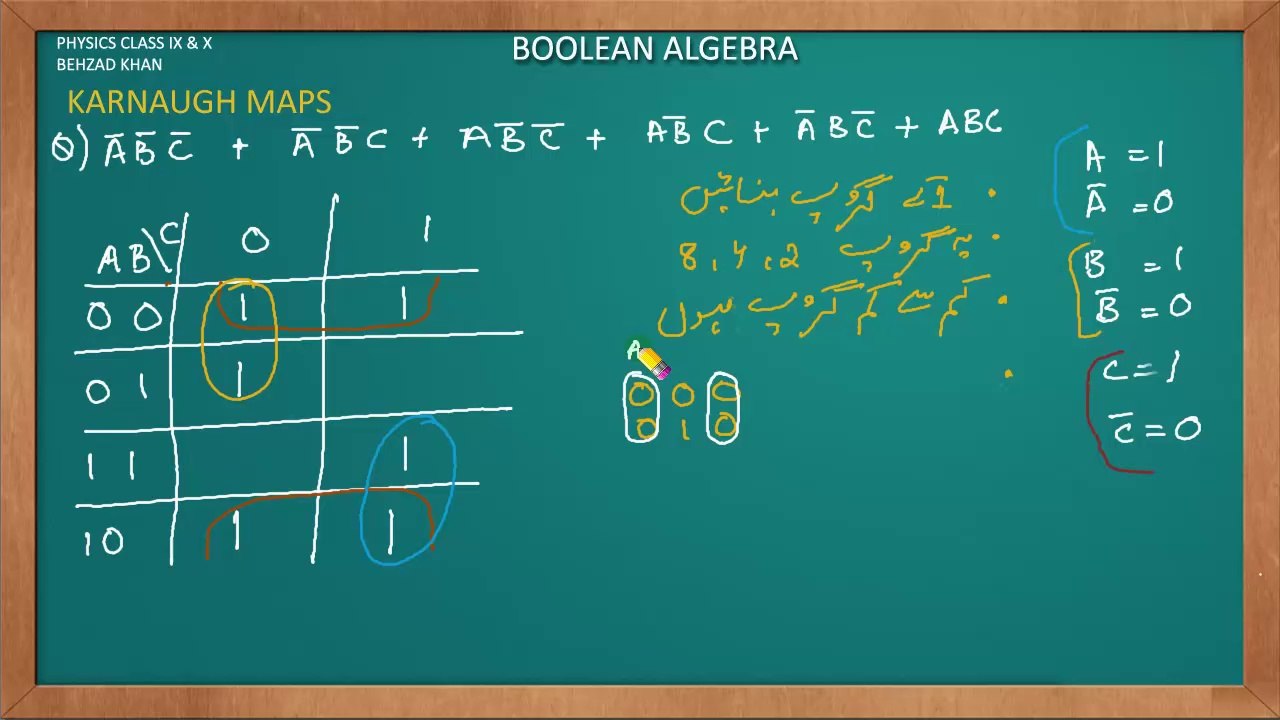 PHYSICS CLASS IX & X
BEHZAD KHAN
BOOLEAN ALGEBRA
KARNAUGH MAPS
Q) A̅ B̅ C̅ + A̅ B̅ C + A B̅ C̅ + A B̅ C + A̅ B C̅ + A B C
A B \ C 0 1
0 0 1 1
0 1 1
1 1 1
1 0 1 1
• 1 کے گروپ بنائیں
• یہ گروپ 2 ، 4 ، 8
• کم سے کم گروپ ہوں
•
A
0 0 0
0 1 0
A = 1
A̅ = 0
B = 1
B̅ = 0
C = 1
C̅ = 0